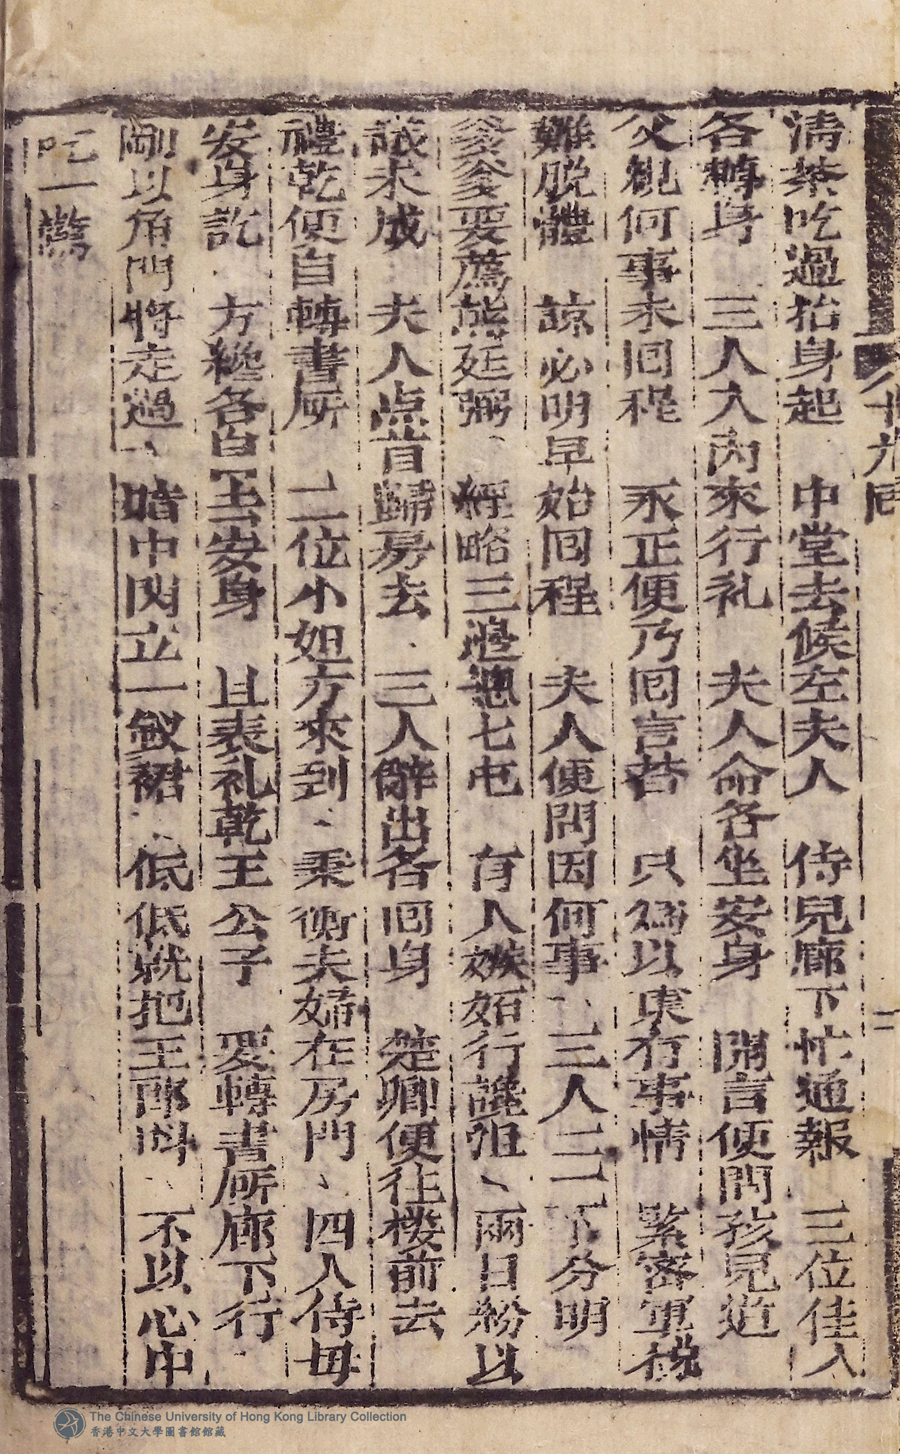 十九回
二
清茶吃過抬身起 中堂去候左夫人 侍兒廊下忙通報 三位佳人
各轉身 三人入內來行礼 夫人命各坐安身 開言便問孩兒道
父親何事未囘程 永正便乃囘言荅 只為以東有事情 緊密軍機
難脫體 諒必明早始囘程 夫人便問因何事 三人一一下分明
爹爹要薦熊廷弼 經略三邊𢡟七屯 有人嫉妬行譭咀 兩日紛以
議未成 夫人点首歸房去 三人辭出各囘身 楚卿便往樓前去
禮乾便自轉書房 二位小姐方來到 秉衡夫婦在房門 四人侍母
安身訖 方纔各自去安身 且表礼乾王公子 要轉書所廊下行
剛以角門將走過 暗中閃立一釵裙 低低就把王郎叫 不以心中
吃一驚
The Chinese University of Hong Kong Library Collection
香港中文大學圖書館館藏